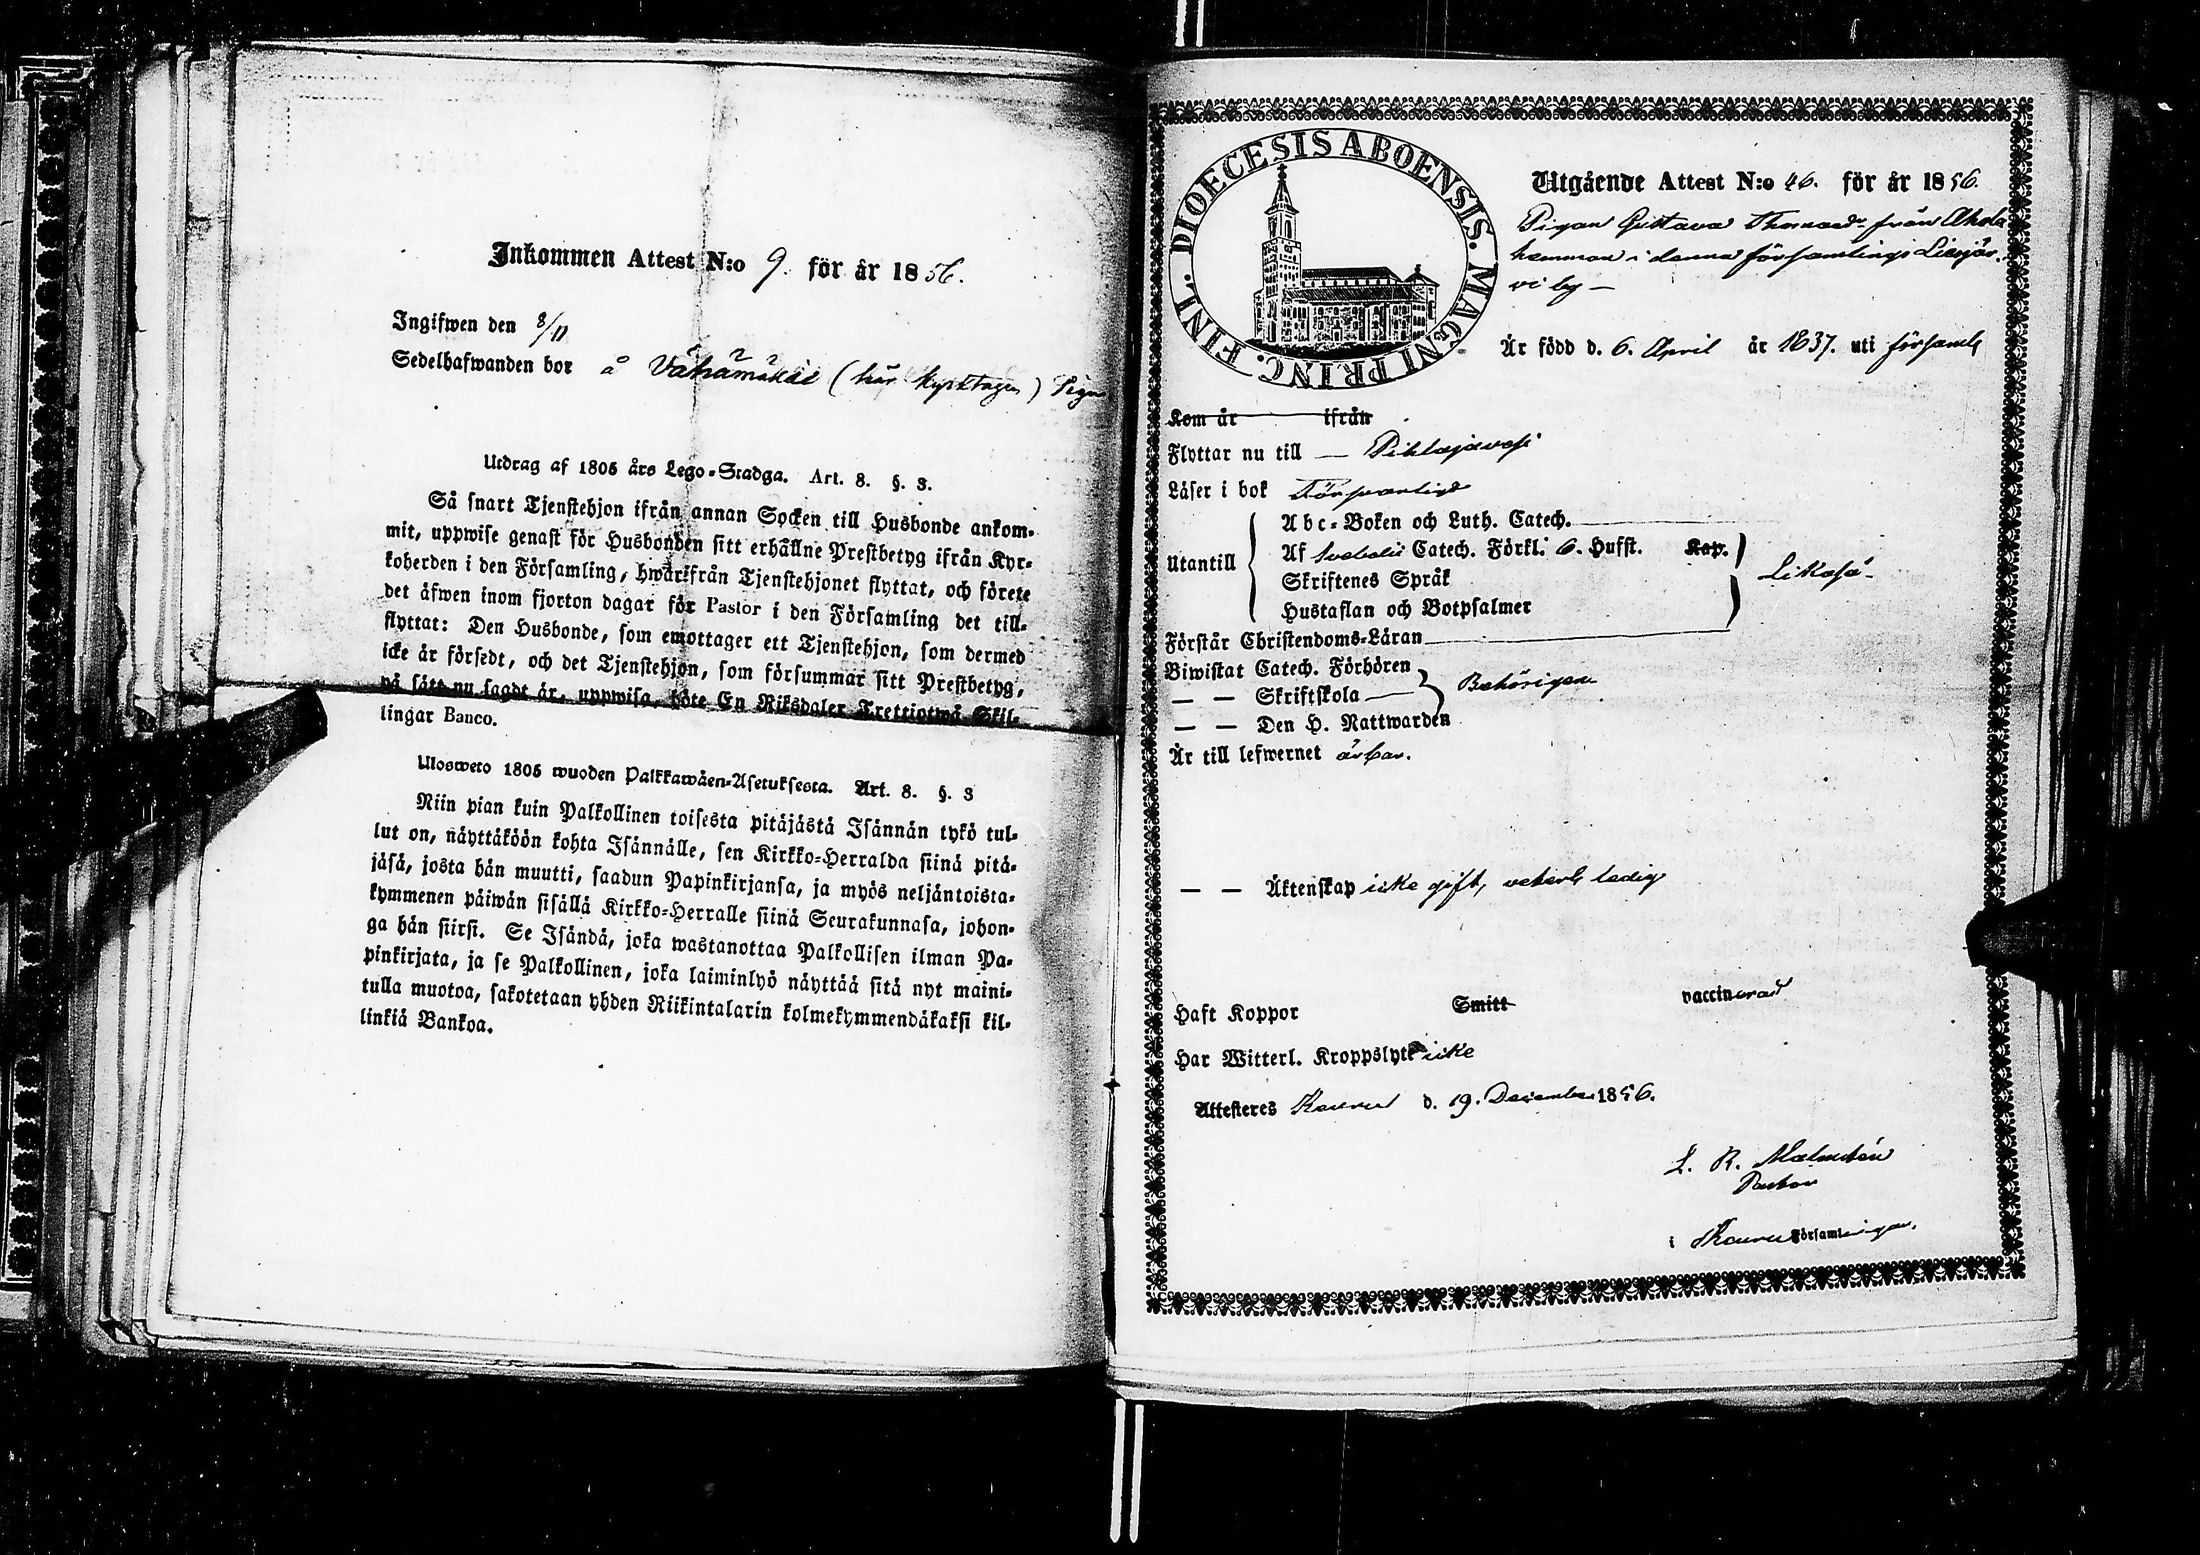 Inkommen Attest N:o 9. för år 1856.
Ingifwen den 8/11
Sedelhafwanden bor å Vähämäkis (här kyrktagen) Pigan
Utdrag af 1805 års Lego-Stadga. Art. 8. §. 3.
Så snart Tjenstehjon ifrån annan Socken till Husbonde ankom-
mit, uppwise genast för Husbonden sitt erhållne Prestbetyg ifrån Kyr-
koherden i den Församling, hwarifrån Tjenstehjonet flyttat, och förete
det äfwen inom fjorton dagar för Pastor i den Församling det till-
flyttat: Den Husbonde, som emottager ett Tjenstehjon, som dermed
icke är försedt, och det Tjenstehjon, som försummar sitt Prestbetyg,
på sätt nu sagdt är, uppwisa, böte En Riksdaler Trettiotwå Skil-
lingar Banco.
Ulosweto 1805 wuoden Palkkawäen-Asetuksesta. Art. 8. §. 3
Niin pian kuin Palkollinen toisesta pitäjästä Isännän tykö tul-
lut on, näyttäköön kohta Isännälle, sen Kirkko-Herralda siinä pitä-
jäsä, josta hän muutti, saadun Papinkirjansa, ja myös neljäntoista-
kymmenen päiwän sisällä Kirkko-Herralle siinä Seurakunnasa, johon-
ga hän siirsi. Se Isändä, joka wastanottaa Palkollisen ilman Pa-
pinkirjata, ja se Palkollinen, joka laiminlyö näyttää sitä nyt maini-
tulla muotoa, sakotetaan yhden Riikintalarin kolmekymmendäkaksi kil-
linkiä Bankoa.
DIOECESIS ABOENSIS. MAGNI PRINC. FINL.
Utgående Attest N:o 46. för år 1856.
Pigan Gustava Thomasd. från Ahola
hemman i denna församlings Liesjär-
vi by —
Är född d. 6. April år 1837. uti församl
Kom år ifrån
Flyttar nu till — Pihlajavesi
Läser i bok Försvarligt
Utantill
Abc-Boken och Luth. Catech.
Af Svebelii Catech. Förkl. 6. Hufst. Kap.
Skriftenes Språk
Hustaflan och Botpsalmer
Likaså
Förstår Christendoms-Läran
Biwistat Catech. Förhören
— — Skriftskola
Behörigen
— — Den H. Nattwarden
Är till lefwernet ärbar.
— — Äktenskap icke gift, veterl. ledig
Haft Koppor Smitt vaccinerad
Har Witterl. Kroppslyte icke
Attesteres Keuru d. 19. December 1856.
L. R. Malmstén
Pastor
i Keuru Församlingar.